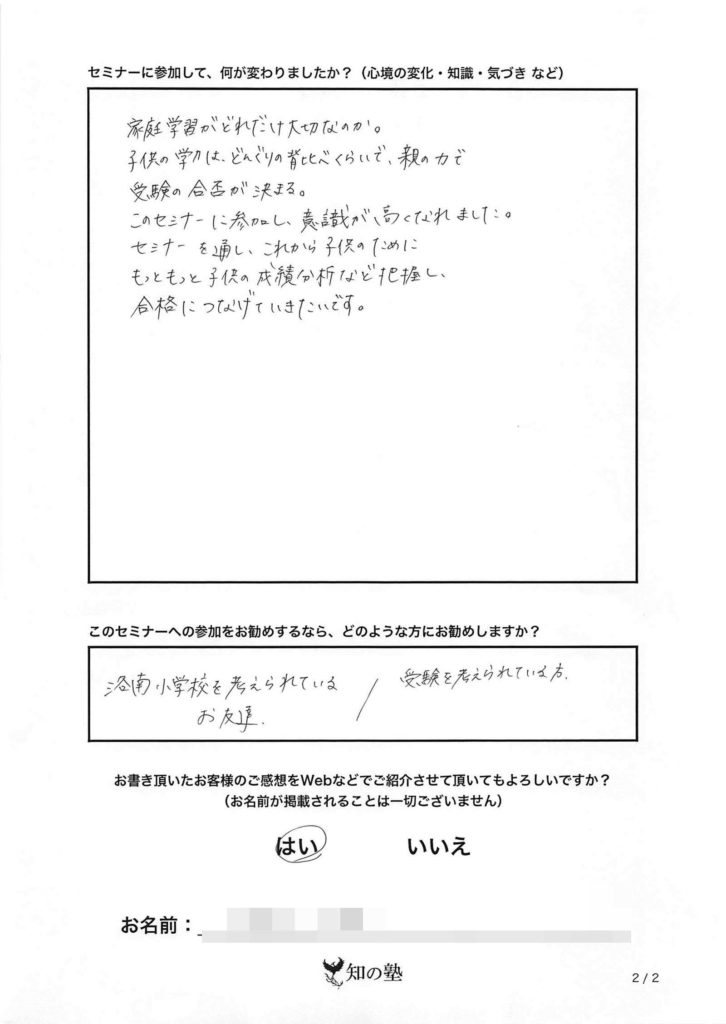 セミナーに参加して、何が変わりましたか？（心境の変化・知識・気づき など）
家庭学習がどれだけ大切なのか。
子供の学力は、どんぐりの背比べくらいで、親の力で
受験の合否が決まる。
このセミナーに参加し、意識が、高くなれました。
セミナーを通し、これから子供のために
もっともっと子供の成績分析など把握し、
合格につなげていきたいです。
このセミナーへの参加をお勧めするなら、どのような方にお勧めしますか？
洛南小学校を考えられている
お友達.
/
受験を考えられている方.
お書き頂いたお客様のご感想をWebなどでご紹介させて頂いてもよろしいですか？
（お名前が掲載されることは一切ございません）
はい いいえ
お名前：
知の塾
2 / 2